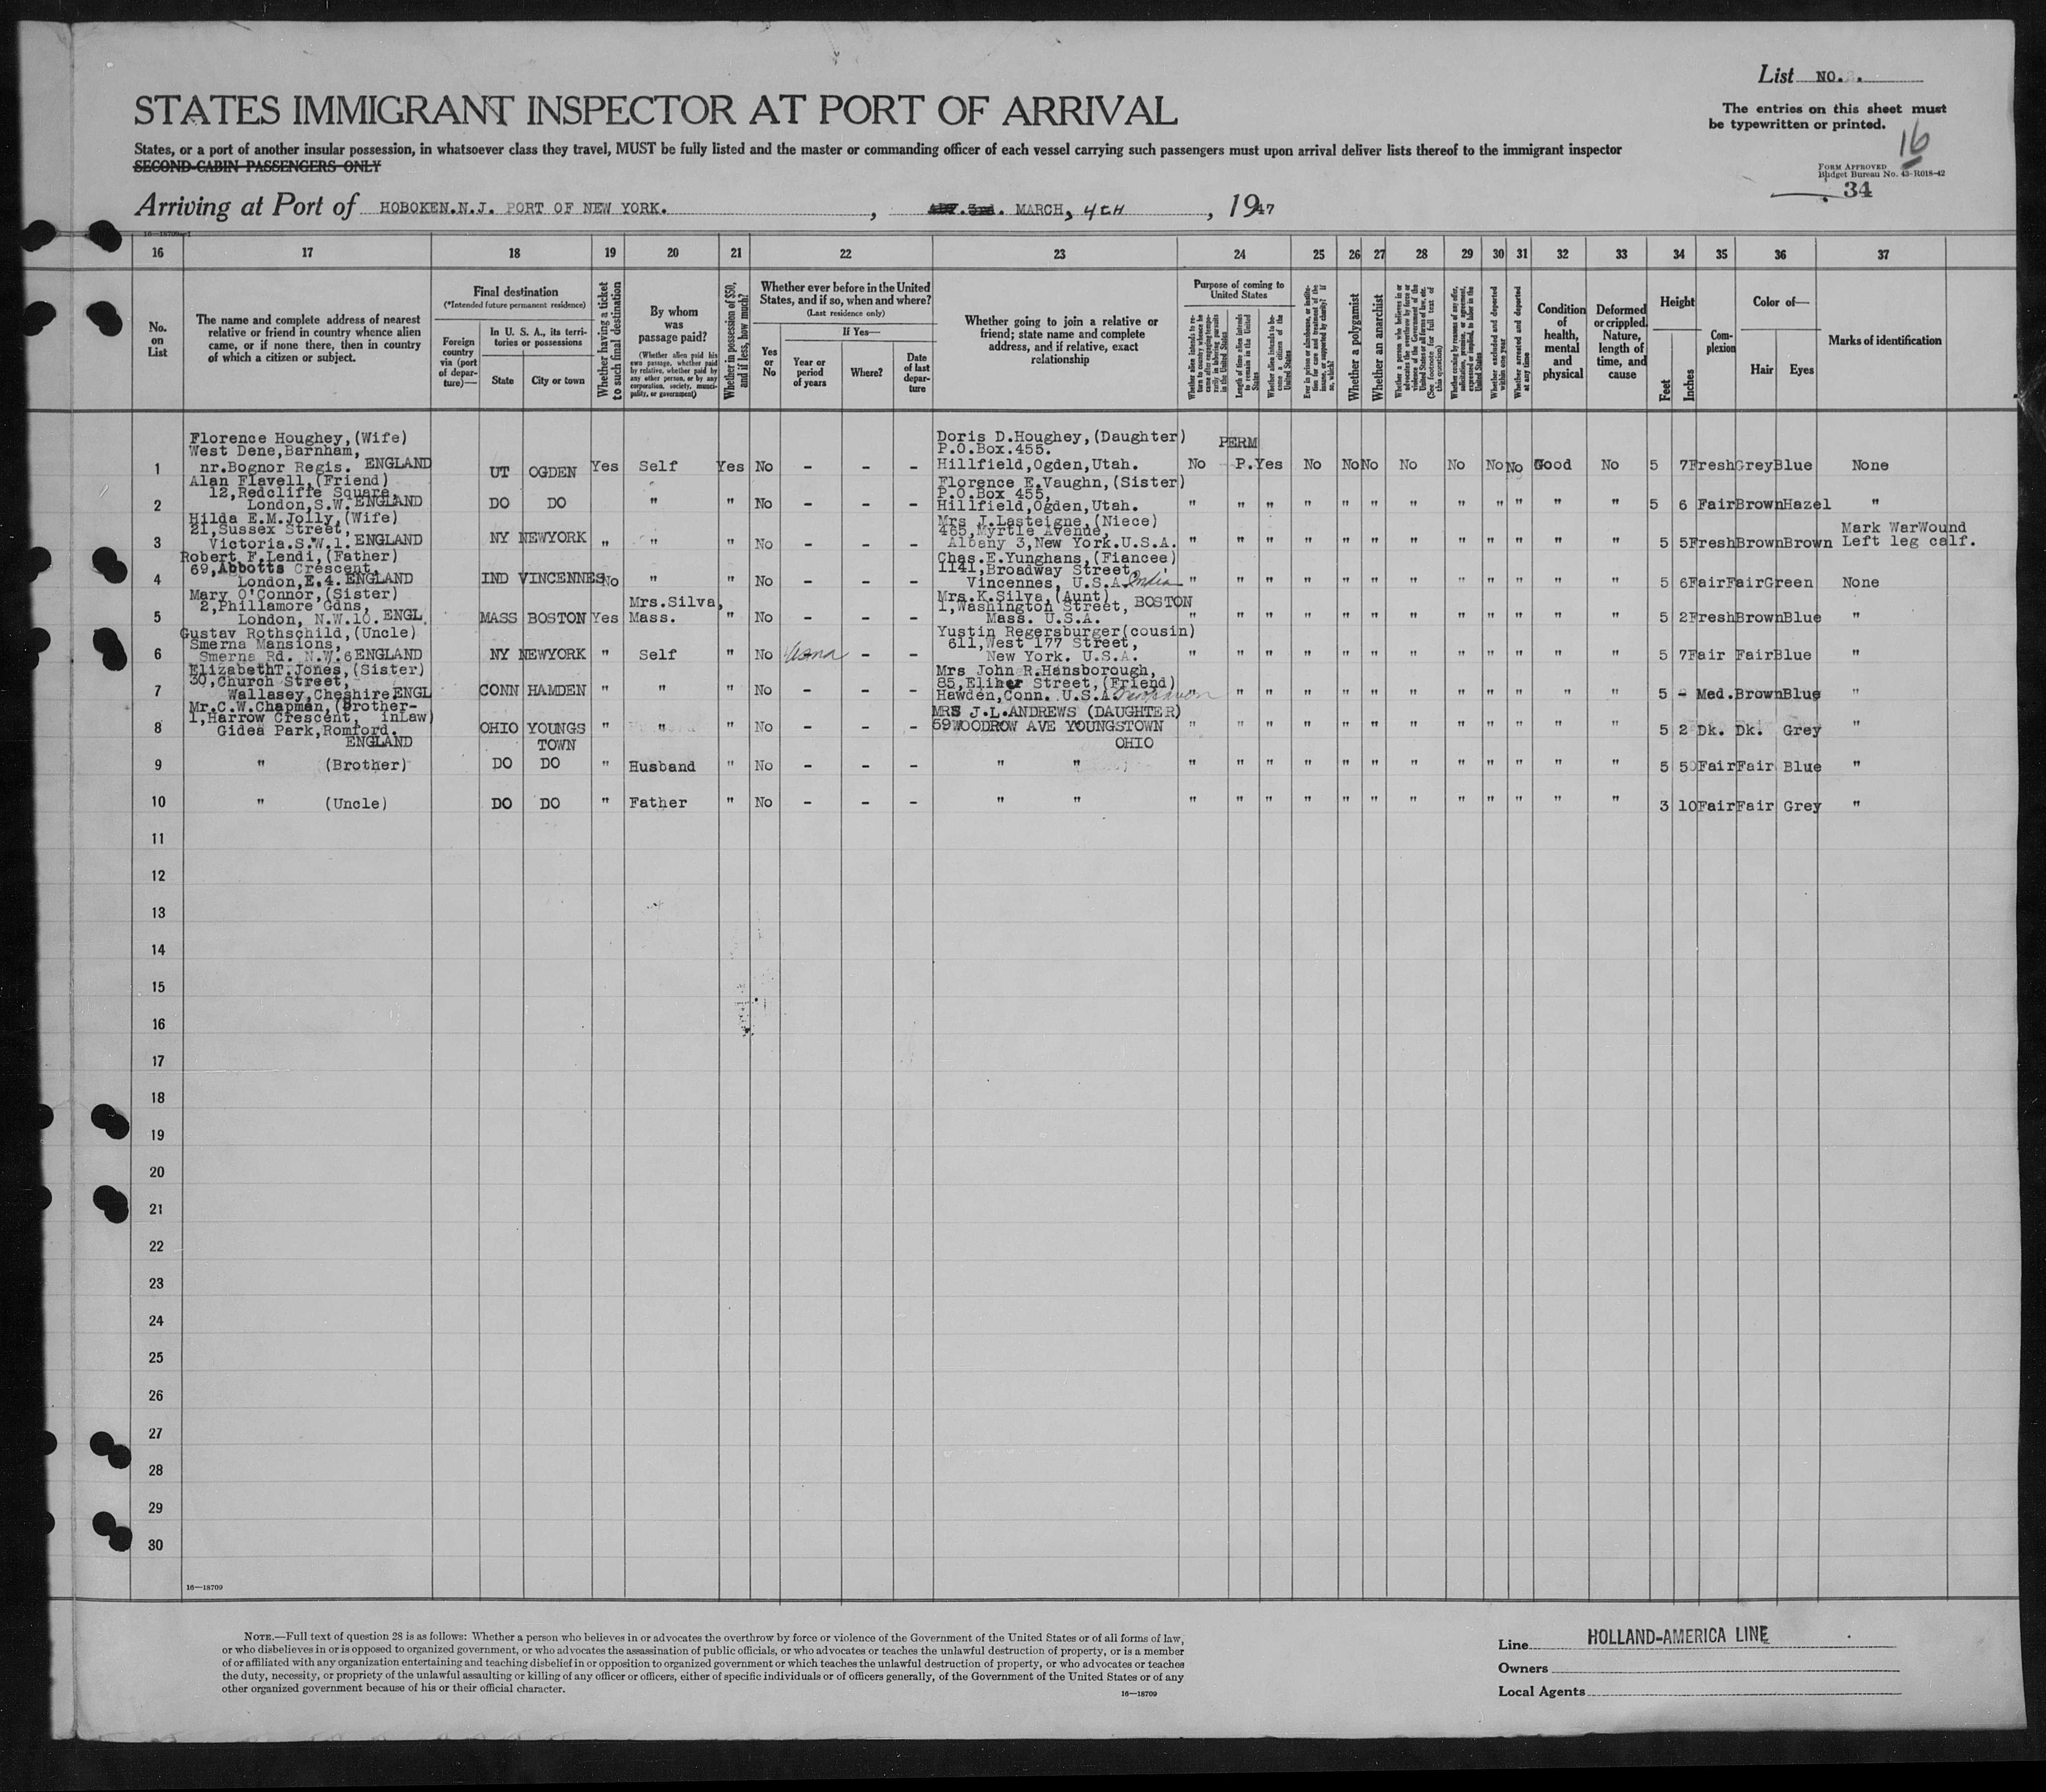 List NO. .
STATES IMMIGRANT INSPECTOR AT PORT OF ARRIVAL
The entries on this sheet must
be typewritten or printed.
16
States, or a port of another insular possession, in whatsoever class they travel, MUST be fully listed and the master or commanding officer of each vessel carrying such passengers must upon arrival deliver lists thereof to the immigrant inspector
SECOND-CABIN PASSENGERS ONLY
FORM APPROVED
Budget Bureau No. 43-R018-42
34
Arriving at Port of HOBOKEN.N.J. PORT OF NEW YORK. , MARCH, 4TH , 1947
16 17 18 19 20 21 22 23 24 25 26 27 28 29 30 31 32 33 34 35 36 37
No. on List
The name and complete address of nearest relative or friend in country whence alien came, or if none there, then in country of which a citizen or subject.
Final destination
(*Intended future permanent residence)
Foreign country via (port of departure)—
In U. S. A., its territories or possessions
State
City or town
Whether having a ticket to such final destination
By whom was passage paid?
(Whether alien paid his own passage, whether paid by relative, whether paid by any other person, or by any corporation, society, municipality, or government)
Whether in possession of $50, and if less, how much?
Whether ever before in the United States, and if so, when and where?
(Last residence only)
Yes or No
If Yes—
Year or period of years
Where?
Date of last departure
Whether going to join a relative or friend; state name and complete address, and if relative, exact relationship
Purpose of coming to United States
Length of time alien intends to remain in the United States
Whether alien intends to become a citizen of the United States
Whether a polygamist
Whether an anarchist
Whether excluded and deported within one year
Whether arrested and deported at any time
Condition of health, mental and physical
Deformed or crippled. Nature, length of time, and cause
Height
Feet
Inches
Complexion
Color of—
Hair
Eyes
Marks of identification
Florence Houghey,(Wife) Doris D.Houghey,(Daughter) PERM
West Dene,Barnham, P.O.Box.455.
1 nr.Bognor Regis. ENGLAND UT OGDEN Yes Self Yes No - - - Hillfield,Ogden,Utah. No P. Yes No No No No No No No Good No 5 7 Fresh Grey Blue None
Alan Flavell,(Friend) Florence E.Vaughn,(Sister)
12,Redcliffe Square, P.O.Box 455,
2 London,S.W. ENGLAND DO DO " " No - - - Hillfield,Ogden,Utah. " " " " " " " " " " " " 5 6 Fair Brown Hazel "
Hilda E.M.Jolly,(Wife) Mrs J.Lasteigne,(Niece)
21,Sussex Street, 465,Myrtle Avenue, Mark WarWound
3 Victoria.S.W.1. ENGLAND NY NEWYORK " " " No - - - Albany 3,New York.U.S.A. " " " " " " " " " " " " 5 5 Fresh Brown Brown Left leg calf.
Robert F.Lendi,(Father) Chas.E.Yunghans,(Fiancee)
69,Abbotts Crescent, 1141,Broadway Street,
4 London,E.4. ENGLAND IND VINCENNES No " " No - - - Vincennes, U.S.A. India " " " " " " " " " " " " 5 6 Fair Fair Green None
Mary O'Connor,(Sister) Mrs.K.Silva,(Aunt)
2,Phillamore Gdns, Mrs.Silva, 1,Washington Street, BOSTON
5 London, N.W.10. ENGL. MASS BOSTON Yes Mass. " No - - - Mass. U.S.A. " " " " " " " " " " " " 5 2 Fresh Brown Blue "
Gustav Rothschild,(Uncle) Yustin Regersburger(cousin)
Smerna Mansions, 611,West 177 Street,
6 Smerna Rd. N.W.6 ENGLAND NY NEWYORK " Self " No - - New York. U.S.A. " " " " " " " " " " " " 5 7 Fair Fair Blue "
ElizabethT.Jones,(Sister) Mrs John R.Hansborough,
30,Church Street, 85,Eliher Street,(Friend)
7 Wallasey,Cheshire,ENGL CONN HAMDEN " " " No - - - Hawden,Conn. U.S.A. " " " " " " " " " " " " 5 - Med. Brown Blue "
Mr.C.W.Chapman,(Brother- MRS J.L.ANDREWS (DAUGHTER)
1,Harrow Crescent, inLaw)
8 Gidea Park,Romford. OHIO YOUNGS " " " No - - - 59WOODROW AVE YOUNGSTOWN " " " " " " " " " " " " 5 2 Dk. Dk. Grey "
ENGLAND TOWN OHIO
9 " (Brother) DO DO " Husband " No - - - " " " " " " " " " " " " " " 5 5 Fair Fair Blue "
10 " (Uncle) DO DO " Father " No - - - " " " " " " " " " " " " " " 3 10 Fair Fair Grey "
11
12
13
14
15
16
17
18
19
20
21
22
23
24
25
26
27
28
29
30
16—18709
NOTE.—Full text of question 28 is as follows: Whether a person who believes in or advocates the overthrow by force or violence of the Government of the United States or of all forms of law,
or who disbelieves in or is opposed to organized government, or who advocates the assassination of public officials, or who advocates or teaches the unlawful destruction of property, or is a member
of or affiliated with any organization entertaining and teaching disbelief in or opposition to organized government or which teaches the unlawful destruction of property, or who advocates or teaches
the duty, necessity, or propriety of the unlawful assaulting or killing of any officer or officers, either of specific individuals or of officers generally, of the Government of the United States or of any
other organized government because of his or their official character.
16—18709
Line HOLLAND-AMERICA LINE
Owners
Local Agents